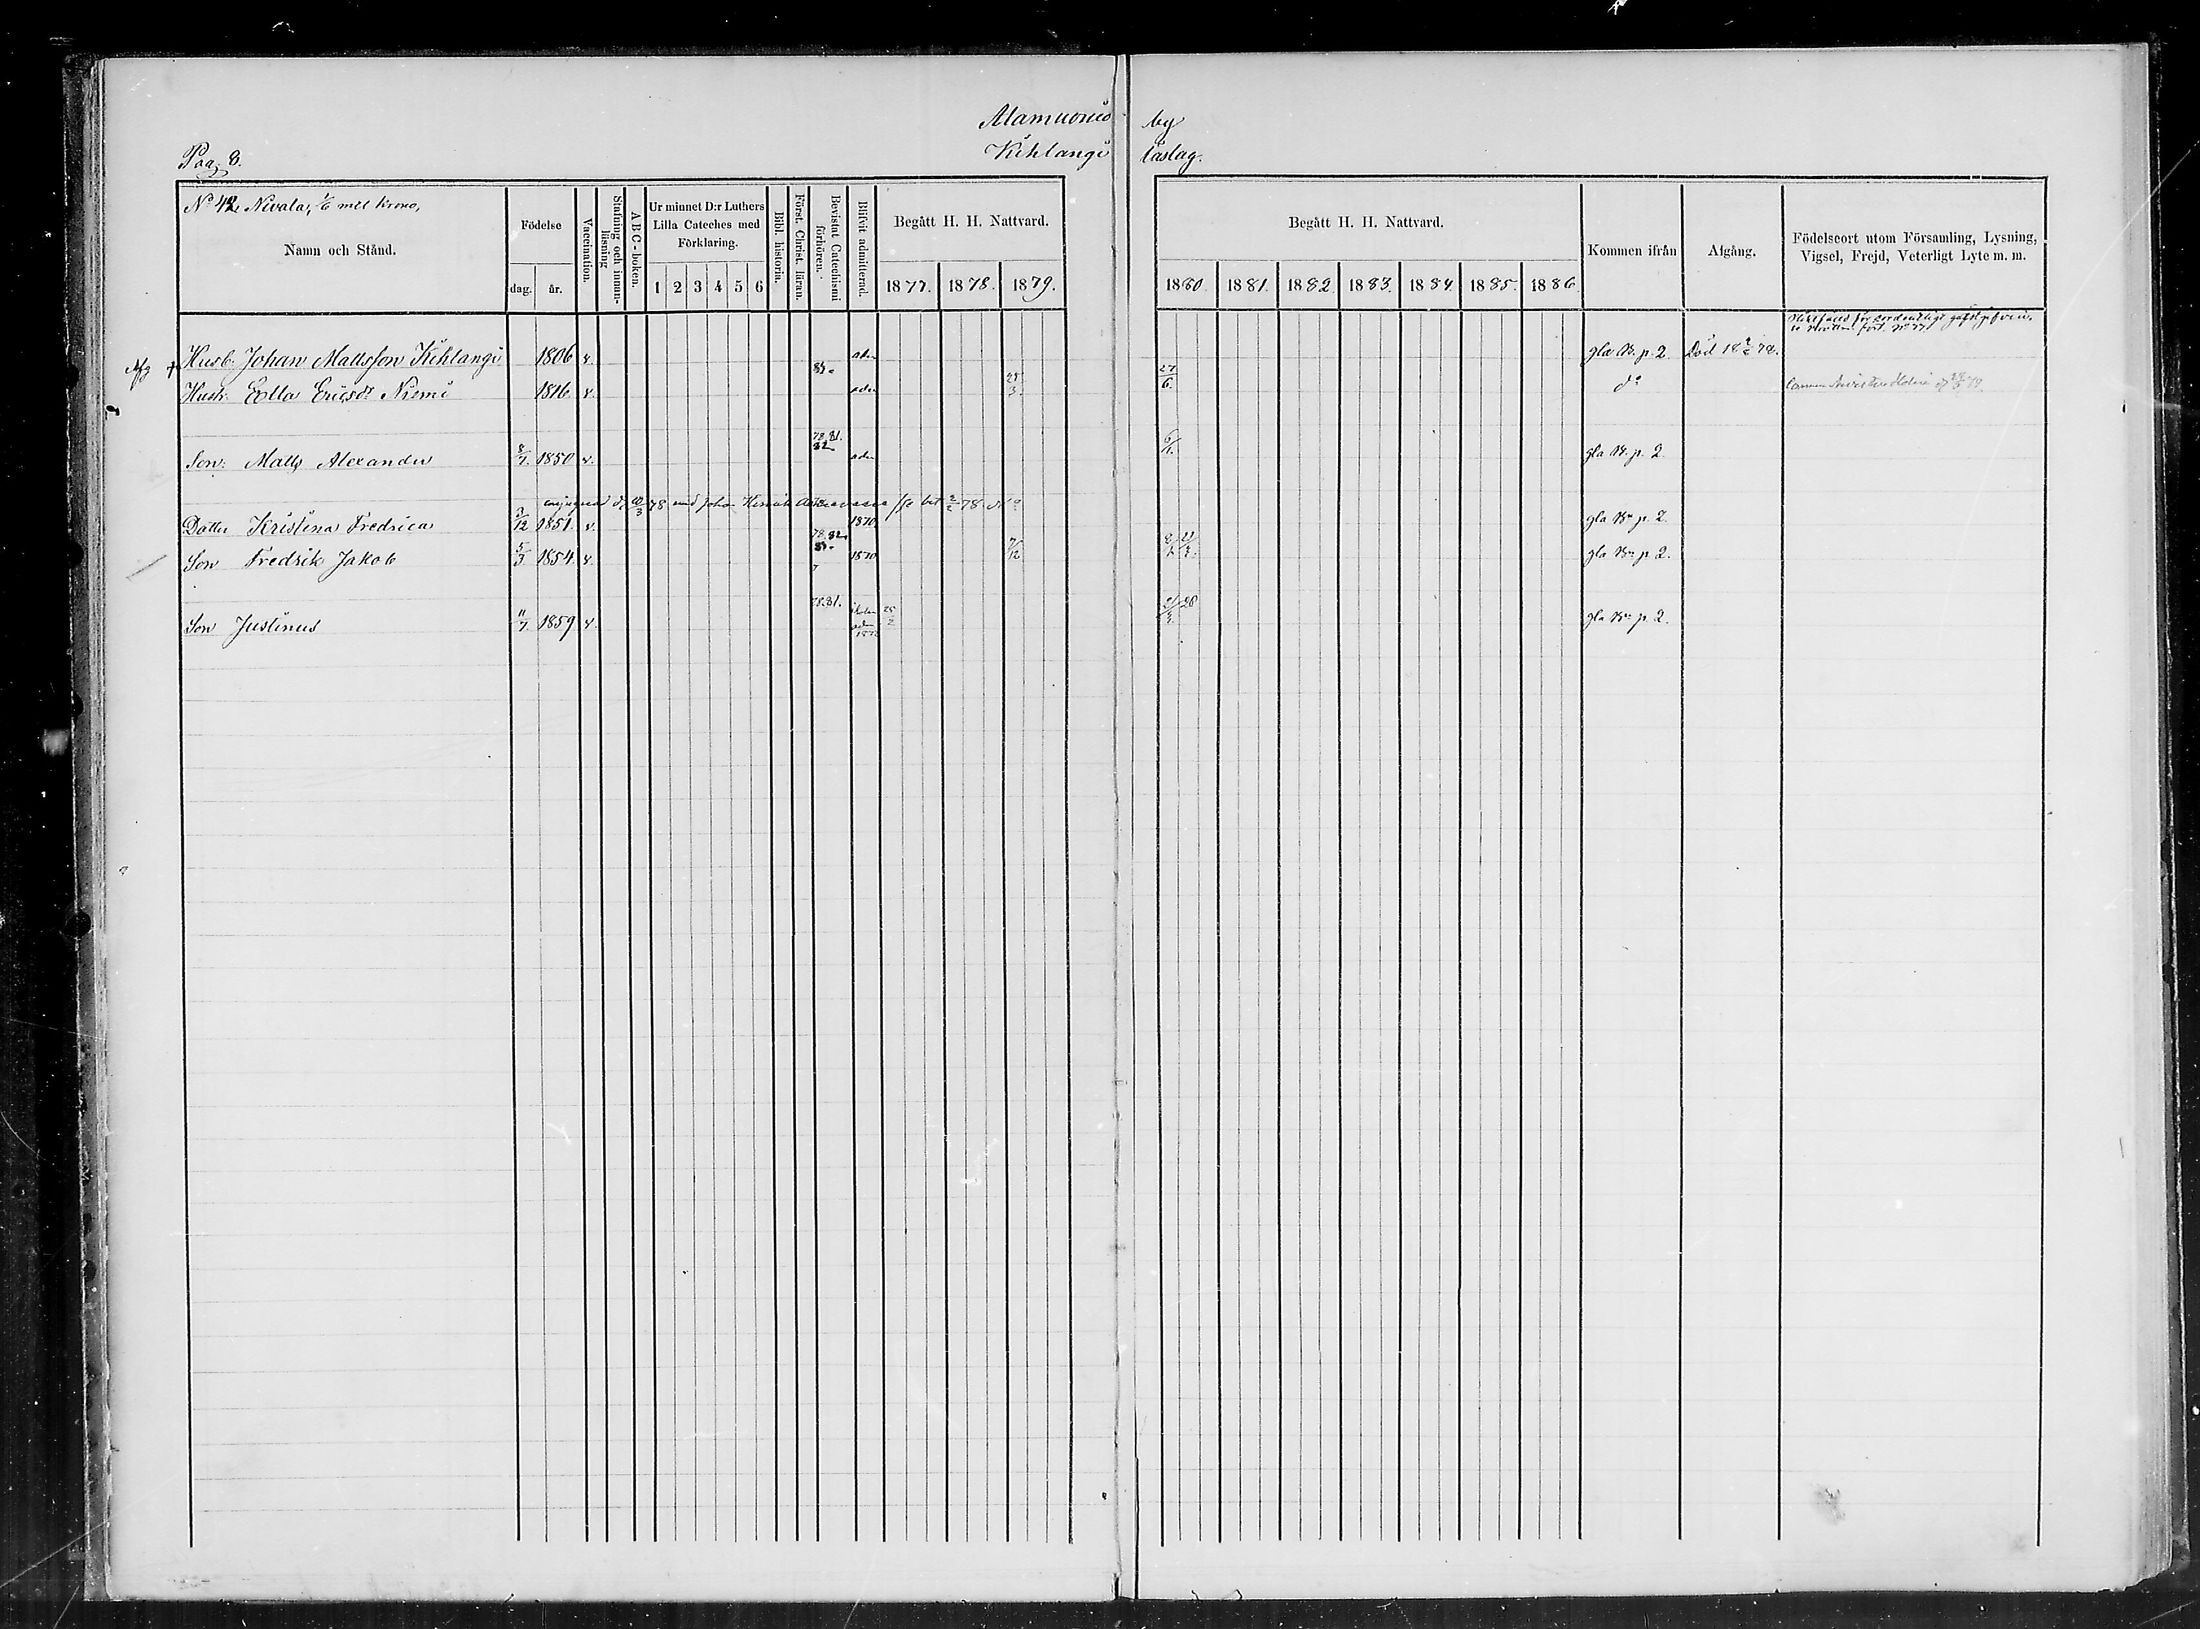 Alamuonio by
Pag. 8. Kihlangi läslag.
No 42 Nivala, 1/6 mtl krono,
Namn och Stånd.
Födelse
dag. år.
Vaccination.
Stafning och innanläsning
ABC-boken.
Ur minnet D:r Luthers
Lilla Cateches med
Förklaring.
1 2 3 4 5 6
Bibl. historia.
Först. Christ. läran.
Bevistat Catechismi förhören.
Blifvit admitterad.
Begått H. H. Nattvard.
1877. 1878. 1879.
Begått H. H. Nattvard.
1880. 1881. 1882. 1883. 1884. 1885. 1886.
Kommen ifrån
Afgång.
Födelseort utom Församling, Lysning,
Vigsel, Frejd, Veterligt Lyte m. m.
Husb. Johan Mattsson Kihlangi 1806 v. adm gla B. p. 2 Död 18 78.
Afg + 83. 27/6
Hustr. Eric:dr Niemi 1816 v. adm 25/3 do
78.81.
82 6/1
Son: Matts Alexander 8/7 1850 v. adm gla B. p. 2
78 med Johan Henrik 2/2 78
Dotter Kristina Fredrica 3/12 1851 v. 1870 gla Bn p. 2.
78.82
83.
Son Fredrik Jakob 5/3 1854 v. 1870 7/12 gla Bn p. 2.
78.81.
Son Justinus 11/7 1859 v. adm 25/2 gla Bn p. 2.